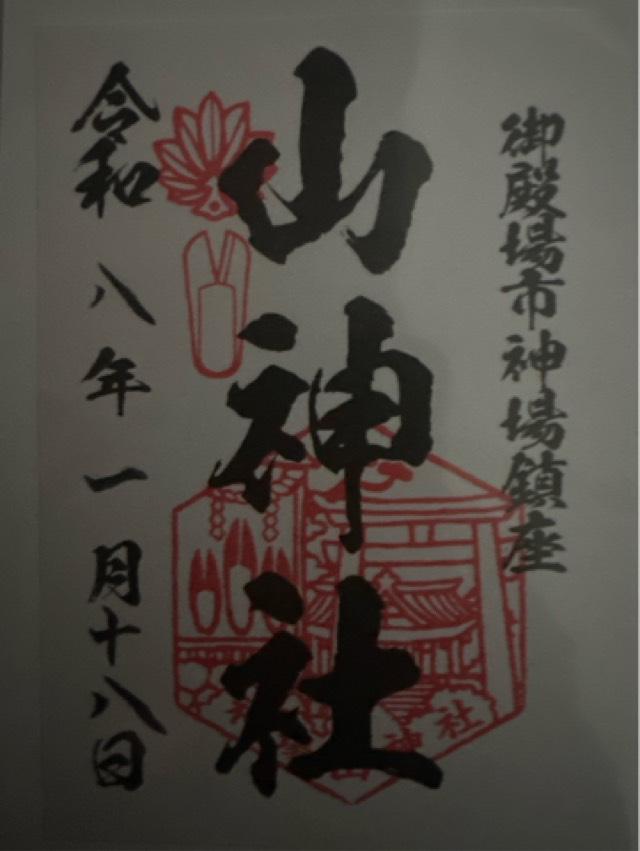 御殿場市神場鎮座
山神社
令和八年一月十八日